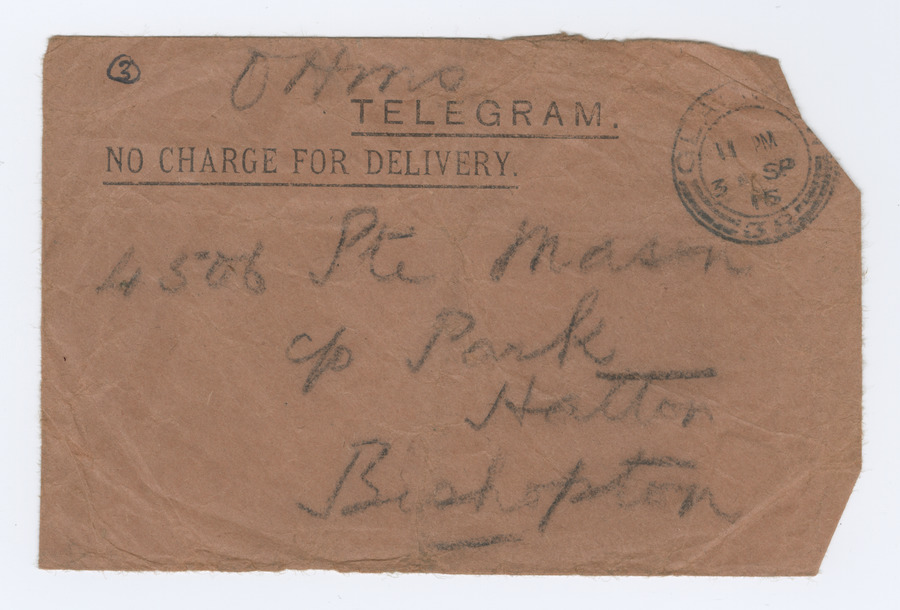 3
OHMS
TELEGRAM.
NO CHARGE FOR DELIVERY.
11 PM
3 SP
15
4506 Pte Mason
c/o Park
Hatton
Bishopton